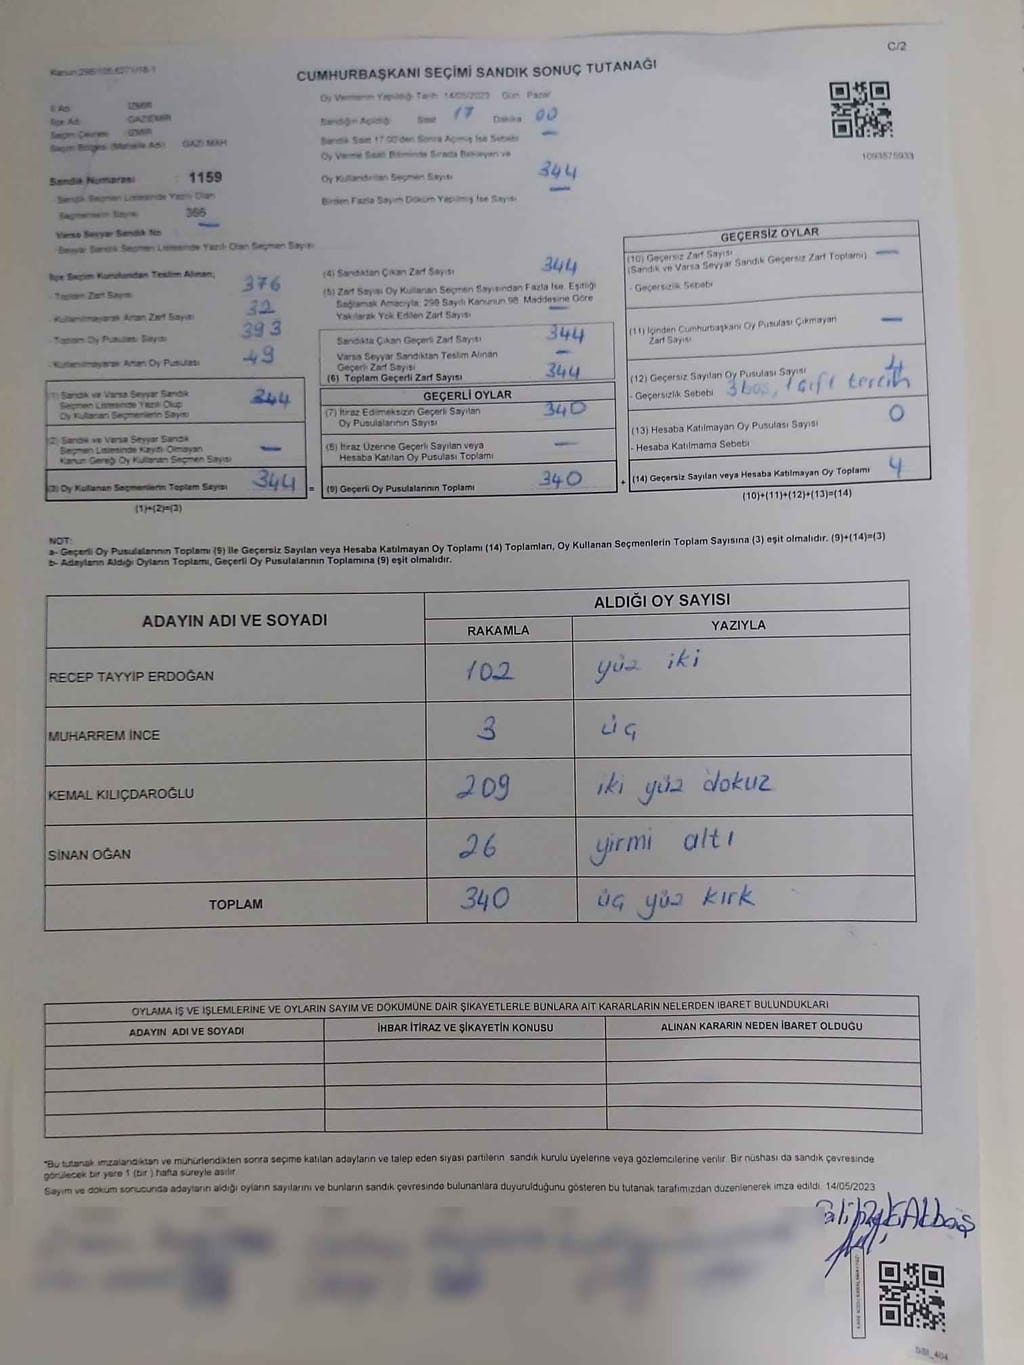 C/2
CUMHURBAŞKANI SEÇİMİ SANDIK SONUÇ TUTANAĞI
İl Adı : İZMİR
İlçe Adı : GAZİEMİR
Seçim Çevresi : İZMİR
Seçim Bölgesi (Mahalle Adı) : GAZİ MAH
Sandık Numarası : 1159
- Sandık Seçmen Listesinde Yazılı Olan
Seçmenlerin Sayısı 366
Varsa Seyyar Sandık No —
Seyyar Sandık Seçmen Listesinde Yazılı Olan Seçmen Sayısı
Oy Vermenin Yapıldığı Tarih 14/05/2023 Gün Pazar
Sandığın Açıldığı Saat 17 Dakika 00
Sandık Saat 17:00'den Sonra Açılmış İse Sebebi —
Oy Verme Saati Bitiminde Sırada Bekleyen ve
Oy Kullandırılan Seçmen Sayısı 344
Birden Fazla Sayım Döküm Yapılmış İse Sayısı —
1093575933
İlçe Seçim Kurulundan Teslim Alınan;
- Toplam Zarf Sayısı 376
- Kullanılmayarak Artan Zarf Sayısı 32
- Toplam Oy Pusulası Sayısı 393
- Kullanılmayarak Artan Oy Pusulası 49
(1) Sandık ve Varsa Seyyar Sandık
Seçmen Listesinde Yazılı Olup
Oy Kullanan Seçmenlerin Sayısı 344
(2) Sandık ve Varsa Seyyar Sandık
Seçmen Listesinde Kayıtlı Olmayan
Kanun Gereği Oy Kullanan Seçmen Sayısı —
(3) Oy Kullanan Seçmenlerin Toplam Sayısı 344 =
(1)+(2)=(3)
(4) Sandıktan Çıkan Zarf Sayısı 344
(5) Zarf Sayısı Oy Kullanan Seçmen Sayısından Fazla İse, Eşitliği
Sağlamak Amacıyla, 298 Sayılı Kanunun 98. Maddesine Göre
Yakılarak Yok Edilen Zarf Sayısı —
Sandıkta Çıkan Geçerli Zarf Sayısı 344
Varsa Seyyar Sandıktan Teslim Alınan
Geçerli Zarf Sayısı —
(6) Toplam Geçerli Zarf Sayısı 344
GEÇERLİ OYLAR
(7) İtiraz Edilmeksizin Geçerli Sayılan
Oy Pusulalarının Sayısı 340
(8) İtiraz Üzerine Geçerli Sayılan veya
Hesaba Katılan Oy Pusulası Toplamı —
(9) Geçerli Oy Pusulalarının Toplamı 340 +
GEÇERSİZ OYLAR
(10) Geçersiz Zarf Sayısı
(Sandık ve Varsa Seyyar Sandık Geçersiz Zarf Toplamı) —
- Geçersizlik Sebebi
(11) İçinden Cumhurbaşkanı Oy Pusulası Çıkmayan
Zarf Sayısı —
(12) Geçersiz Sayılan Oy Pusulası Sayısı 4
- Geçersizlik Sebebi 3 boş, 1 çift tercih
(13) Hesaba Katılmayan Oy Pusulası Sayısı 0
- Hesaba Katılmama Sebebi
(14) Geçersiz Sayılan veya Hesaba Katılmayan Oy Toplamı 4
(10)+(11)+(12)+(13)=(14)
NOT:
a- Geçerli Oy Pusulalarının Toplamı (9) ile Geçersiz Sayılan veya Hesaba Katılmayan Oy Toplamı (14) Toplamları, Oy Kullanan Seçmenlerin Toplam Sayısına (3) eşit olmalıdır. (9)+(14)=(3)
b- Adayların Aldığı Oyların Toplamı, Geçerli Oy Pusulalarının Toplamına (9) eşit olmalıdır.
ADAYIN ADI VE SOYADI ALDIĞI OY SAYISI
RAKAMLA YAZIYLA
RECEP TAYYİP ERDOĞAN 102 yüz iki
MUHARREM İNCE 3 üç
KEMAL KILIÇDAROĞLU 209 iki yüz dokuz
SİNAN OĞAN 26 yirmi altı
TOPLAM 340 üç yüz kırk
OYLAMA İŞ VE İŞLEMLERİNE VE OYLARIN SAYIM VE DÖKÜMÜNE DAİR ŞİKAYETLERLE BUNLARA AİT KARARLARIN NELERDEN İBARET BULUNDUKLARI
ADAYIN ADI VE SOYADI İHBAR İTİRAZ VE ŞİKAYETİN KONUSU ALINAN KARARIN NEDEN İBARET OLDUĞU
*Bu tutanak imzalandıktan ve mühürlendikten sonra seçime katılan adayların ve talep eden siyasi partilerin sandık kurulu üyelerine veya gözlemcilerine verilir. Bir nüshası da sandık çevresinde
görülecek bir yere 1 (bir ) hafta süreyle asılır.
Sayım ve döküm sonucunda adayların aldığı oyların sayılarını ve bunların sandık çevresinde bulunanlara duyurulduğunu gösteren bu tutanak tarafımızdan düzenlenerek imza edildi. 14/05/2023